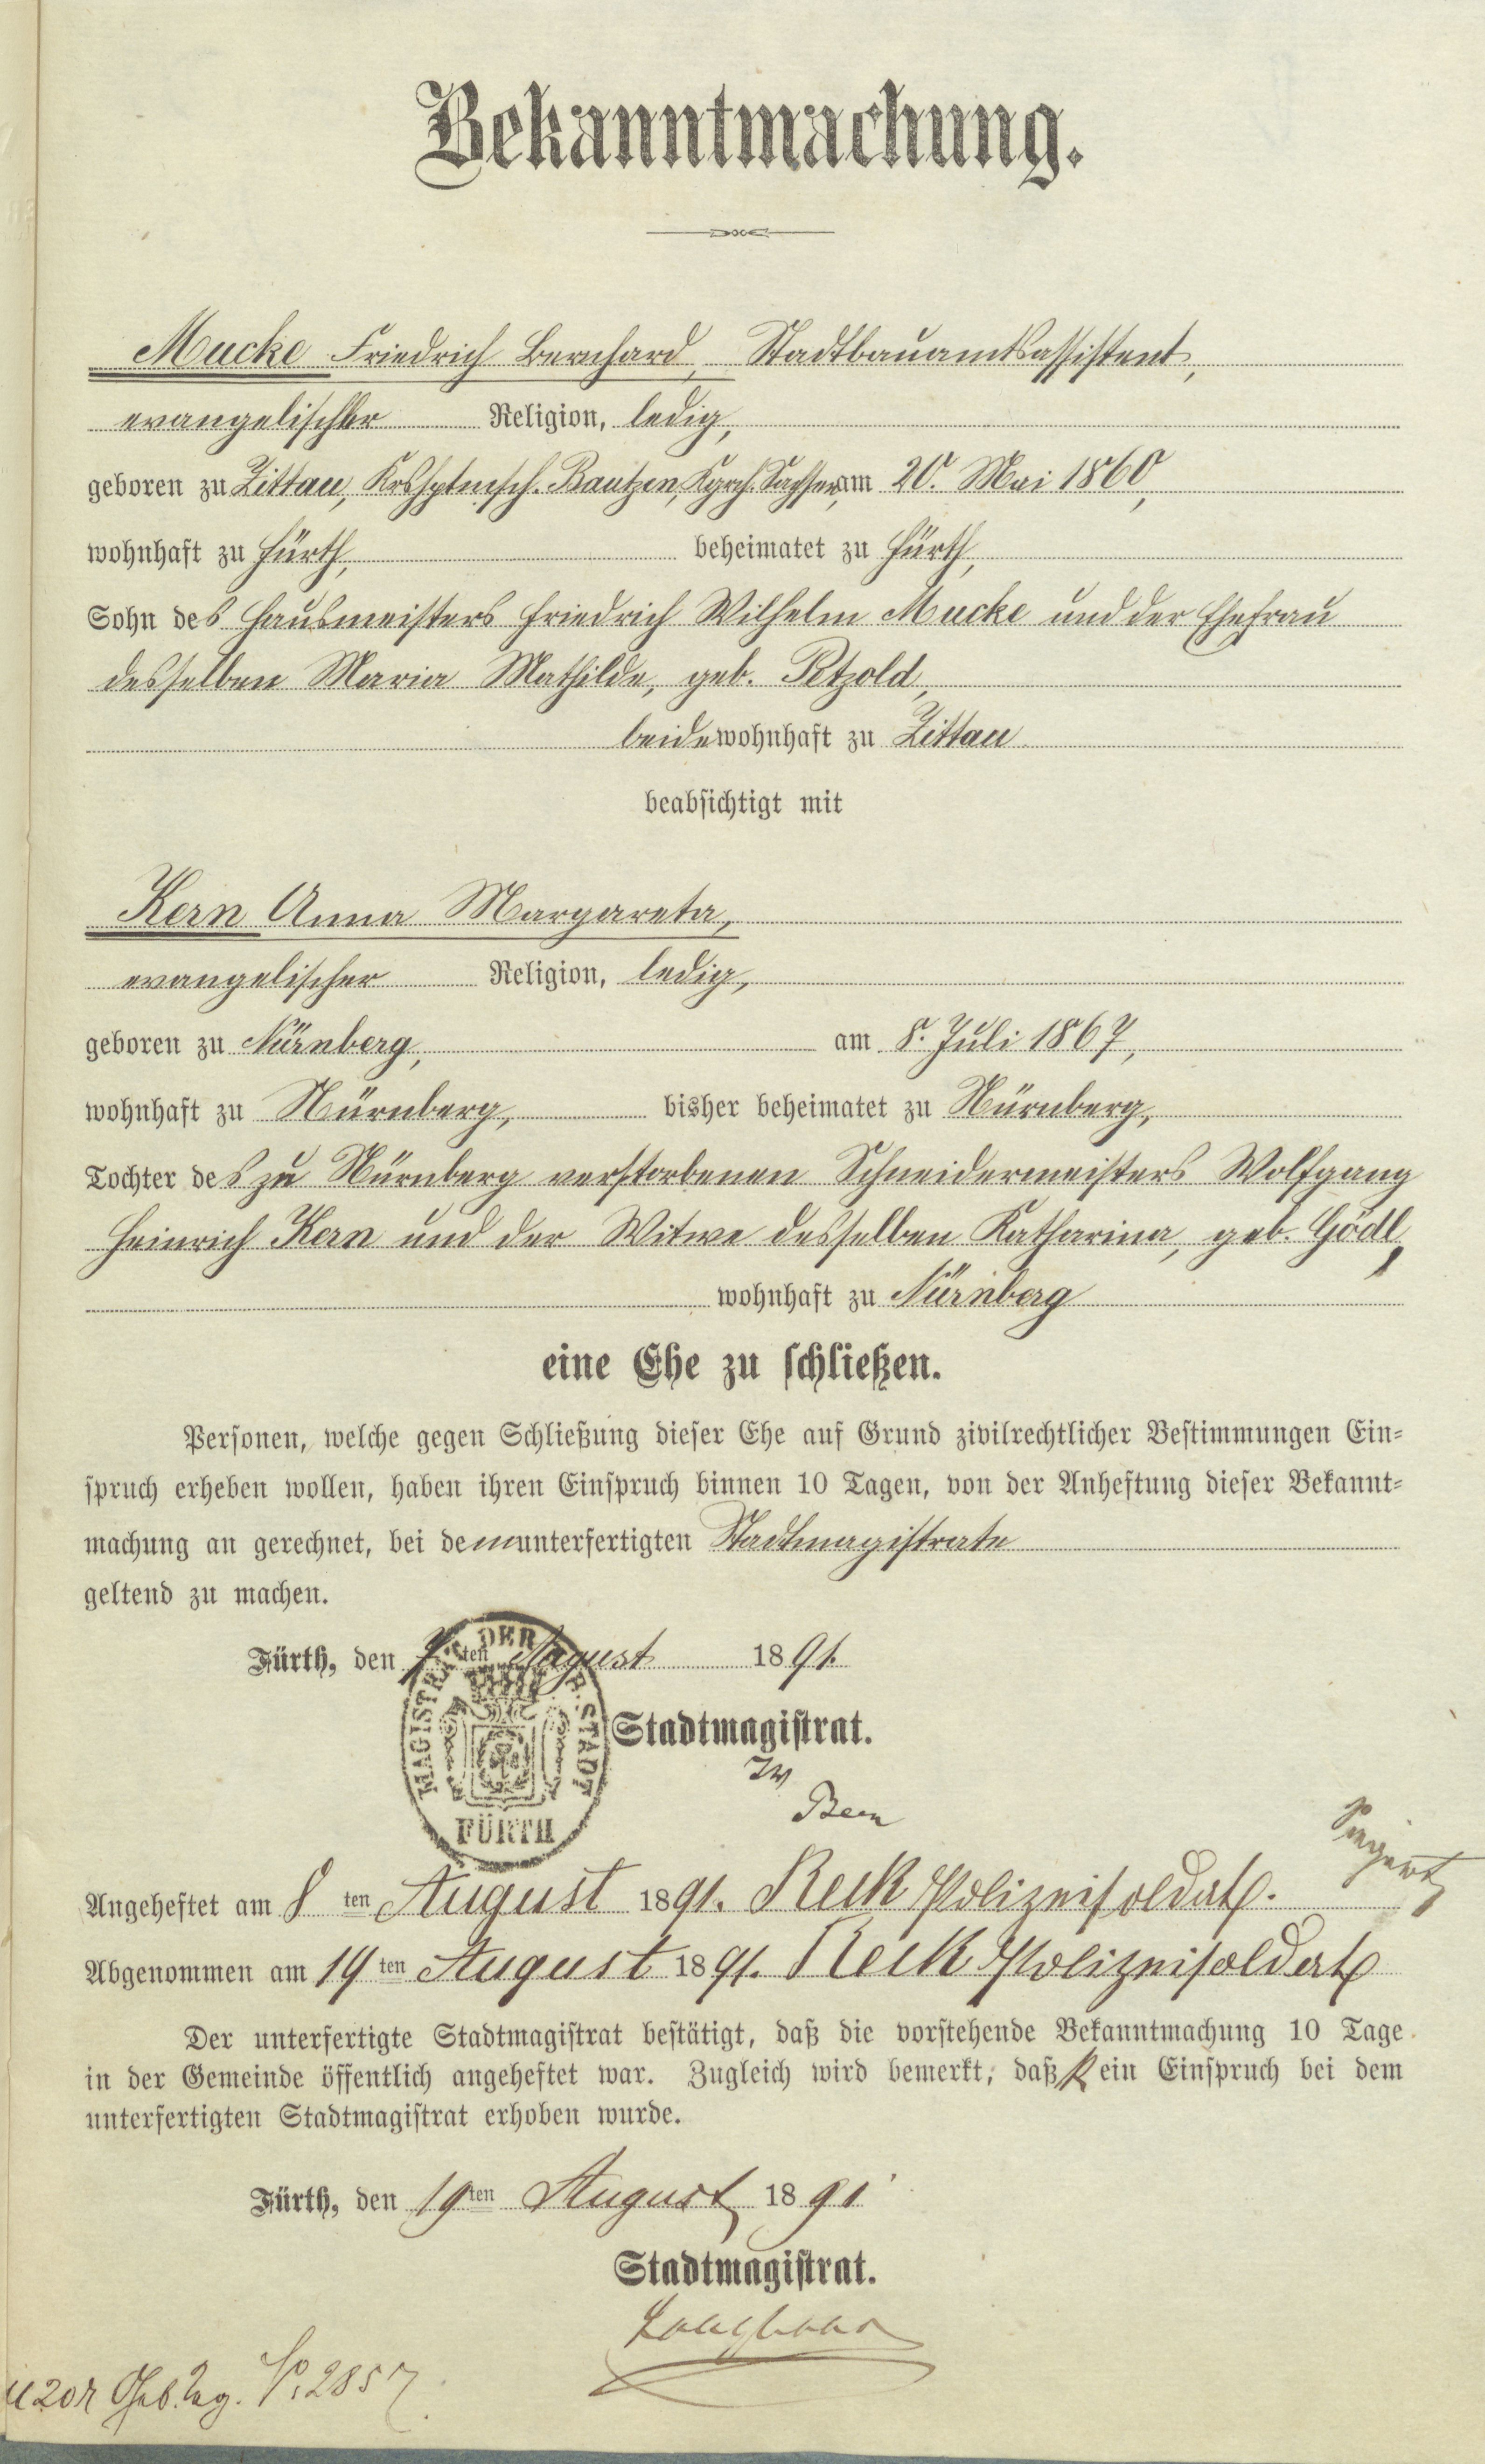 Bekanntmachung.
Mucke Friedrich Bernhard, Stadtbauamtsassistent,
evangelischer Religion, ledig,
geboren zu Zittau, Krshptmsch. Bautzen, Kgrch. Sachsen, am 20. Mai 1860,
wohnhaft zu Fürth, beheimatet zu Fürth,
Sohn des Hausmeisters Friedrich Wilhelm Mucke und der Ehefrau
desselben Maria Mathilde, geb. Petzold,
beide wohnhaft zu Zittau
beabsichtigt mit
Kern Anna Margareta,
evangelischer Religion, ledig,
geboren zu Nürnberg, am 8. Juli 1867,
wohnhaft zu Nürnberg, bisher beheimatet zu Nürnberg,
Tochter des zu Nürnberg verstorbenen Schneidermeisters Wolfgang
Heinrich Kern und der Witwe desselben Katharina, geb. Gödl,
wohnhaft zu Nürnberg
eine Ehe zu schließen.
Personen, welche gegen Schließung dieser Ehe auf Grund zivilrechtlicher Bestimmungen Ein-
spruch erheben wollen, haben ihren Einspruch binnen 10 Tagen, von der Anheftung dieser Bekannt-
machung an gerechnet, bei dem unterfertigten Stadtmagistrate
geltend zu machen.
Fürth, den 7ten August 1891.
MAGISTRAT DER STADT
FÜRTH
Stadtmagistrat.
Angeheftet am 8ten August 1891. Reck Polizeisoldat.
Abgenommen am 19ten August 1891. Reck Polizeisoldat
Der unterfertigte Stadtmagistrat bestätigt, daß die vorstehende Bekanntmachung 10 Tage
in der Gemeinde öffentlich angeheftet war. Zugleich wird bemerkt, daß kein Einspruch bei dem
unterfertigten Stadtmagistrat erhoben wurde.
Fürth, den 19ten August 1891
Stadtmagistrat.